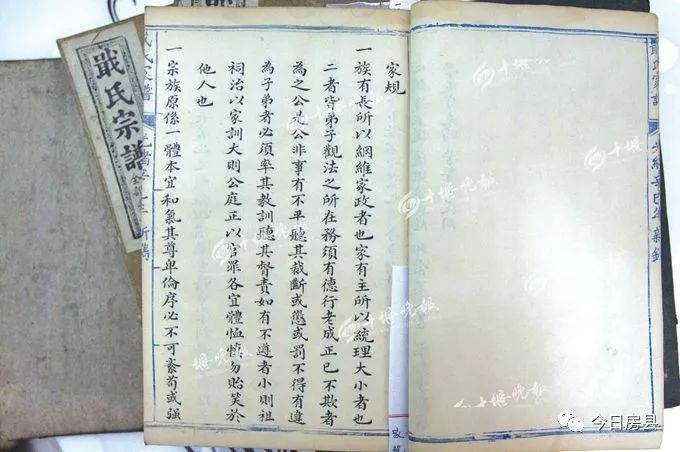 戢氏家譜
光緒辛巳年
家規
一族有長所以綱維家政者也家有主所以統理大小者也
二者皆弟子觀法之所在務須有德行老成正已不欺者
為之公是公非事有不平聽其裁斷或懲或罰不得有違
為子弟者必須率其教訓聽其督責如有不遵者小則祖
祠治以家訓大則公庭正以官罪各宜體恤慎勿貽笑於
他人也
一宗族原係一體本宜和氣其尊卑倫序必不可紊苟或強
戢氏家譜
戢氏宗譜
十堰晚報
十堰晚報
十堰晚報
十堰晚報
今日房县